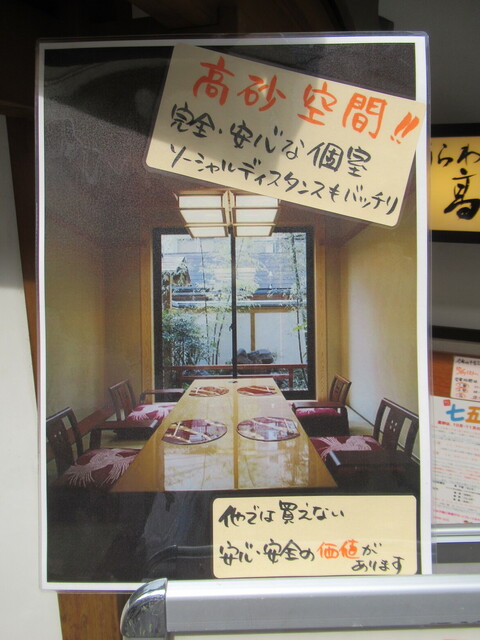 高砂空間!!
完全・安心な個室
ソーシャルディスタンスもバッチリ
らわ
高
七五
他では買えない
安心・安全の価値が
あります